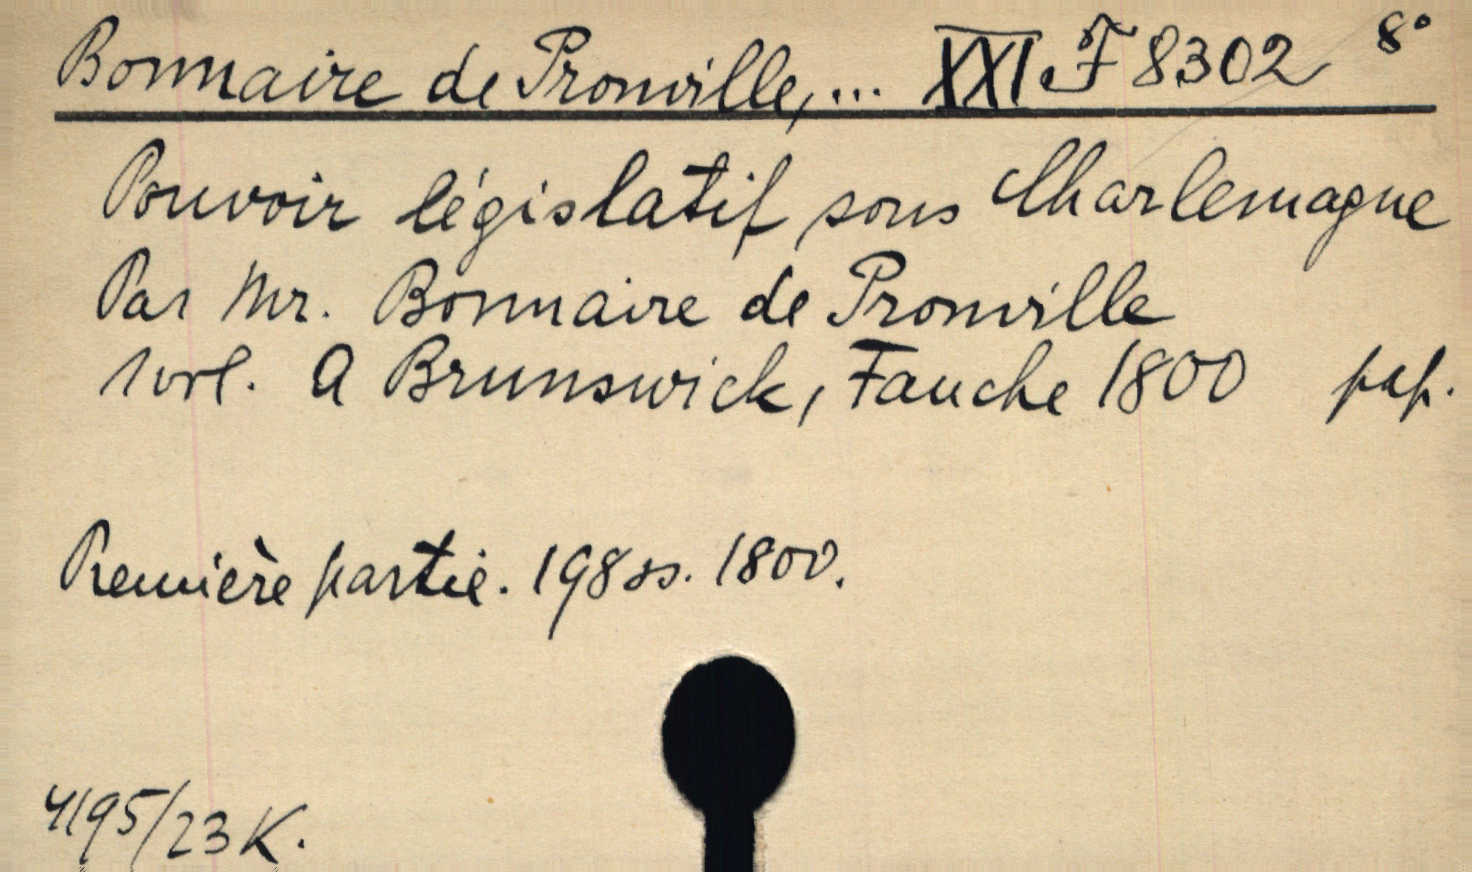 Bonnaire de Pronville, ... XXI. F 8302 8°
Pouvoir législatif sous Charlemagne
Par Mr. Bonnaire de Pronville
1 vol. A Brunswick, Fauche 1800 pap.
Première partie. 198 ss. 1800.
4195/23 K.